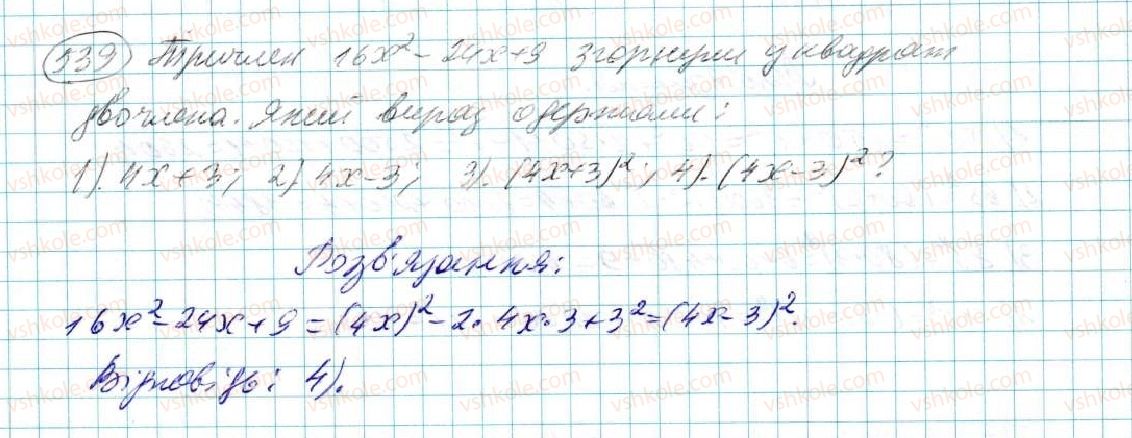 539 Тричлен 16x² - 24x + 9 згорнули у квадрат
двочлена. Який вираз одержали:
1). 4x + 3; 2). 4x - 3; 3). (4x+3)²; 4). (4x-3)²?
Розв'язання:
16x² - 24x + 9 = (4x)² - 2 · 4x · 3 + 3² = (4x - 3)².
Відповідь: 4).